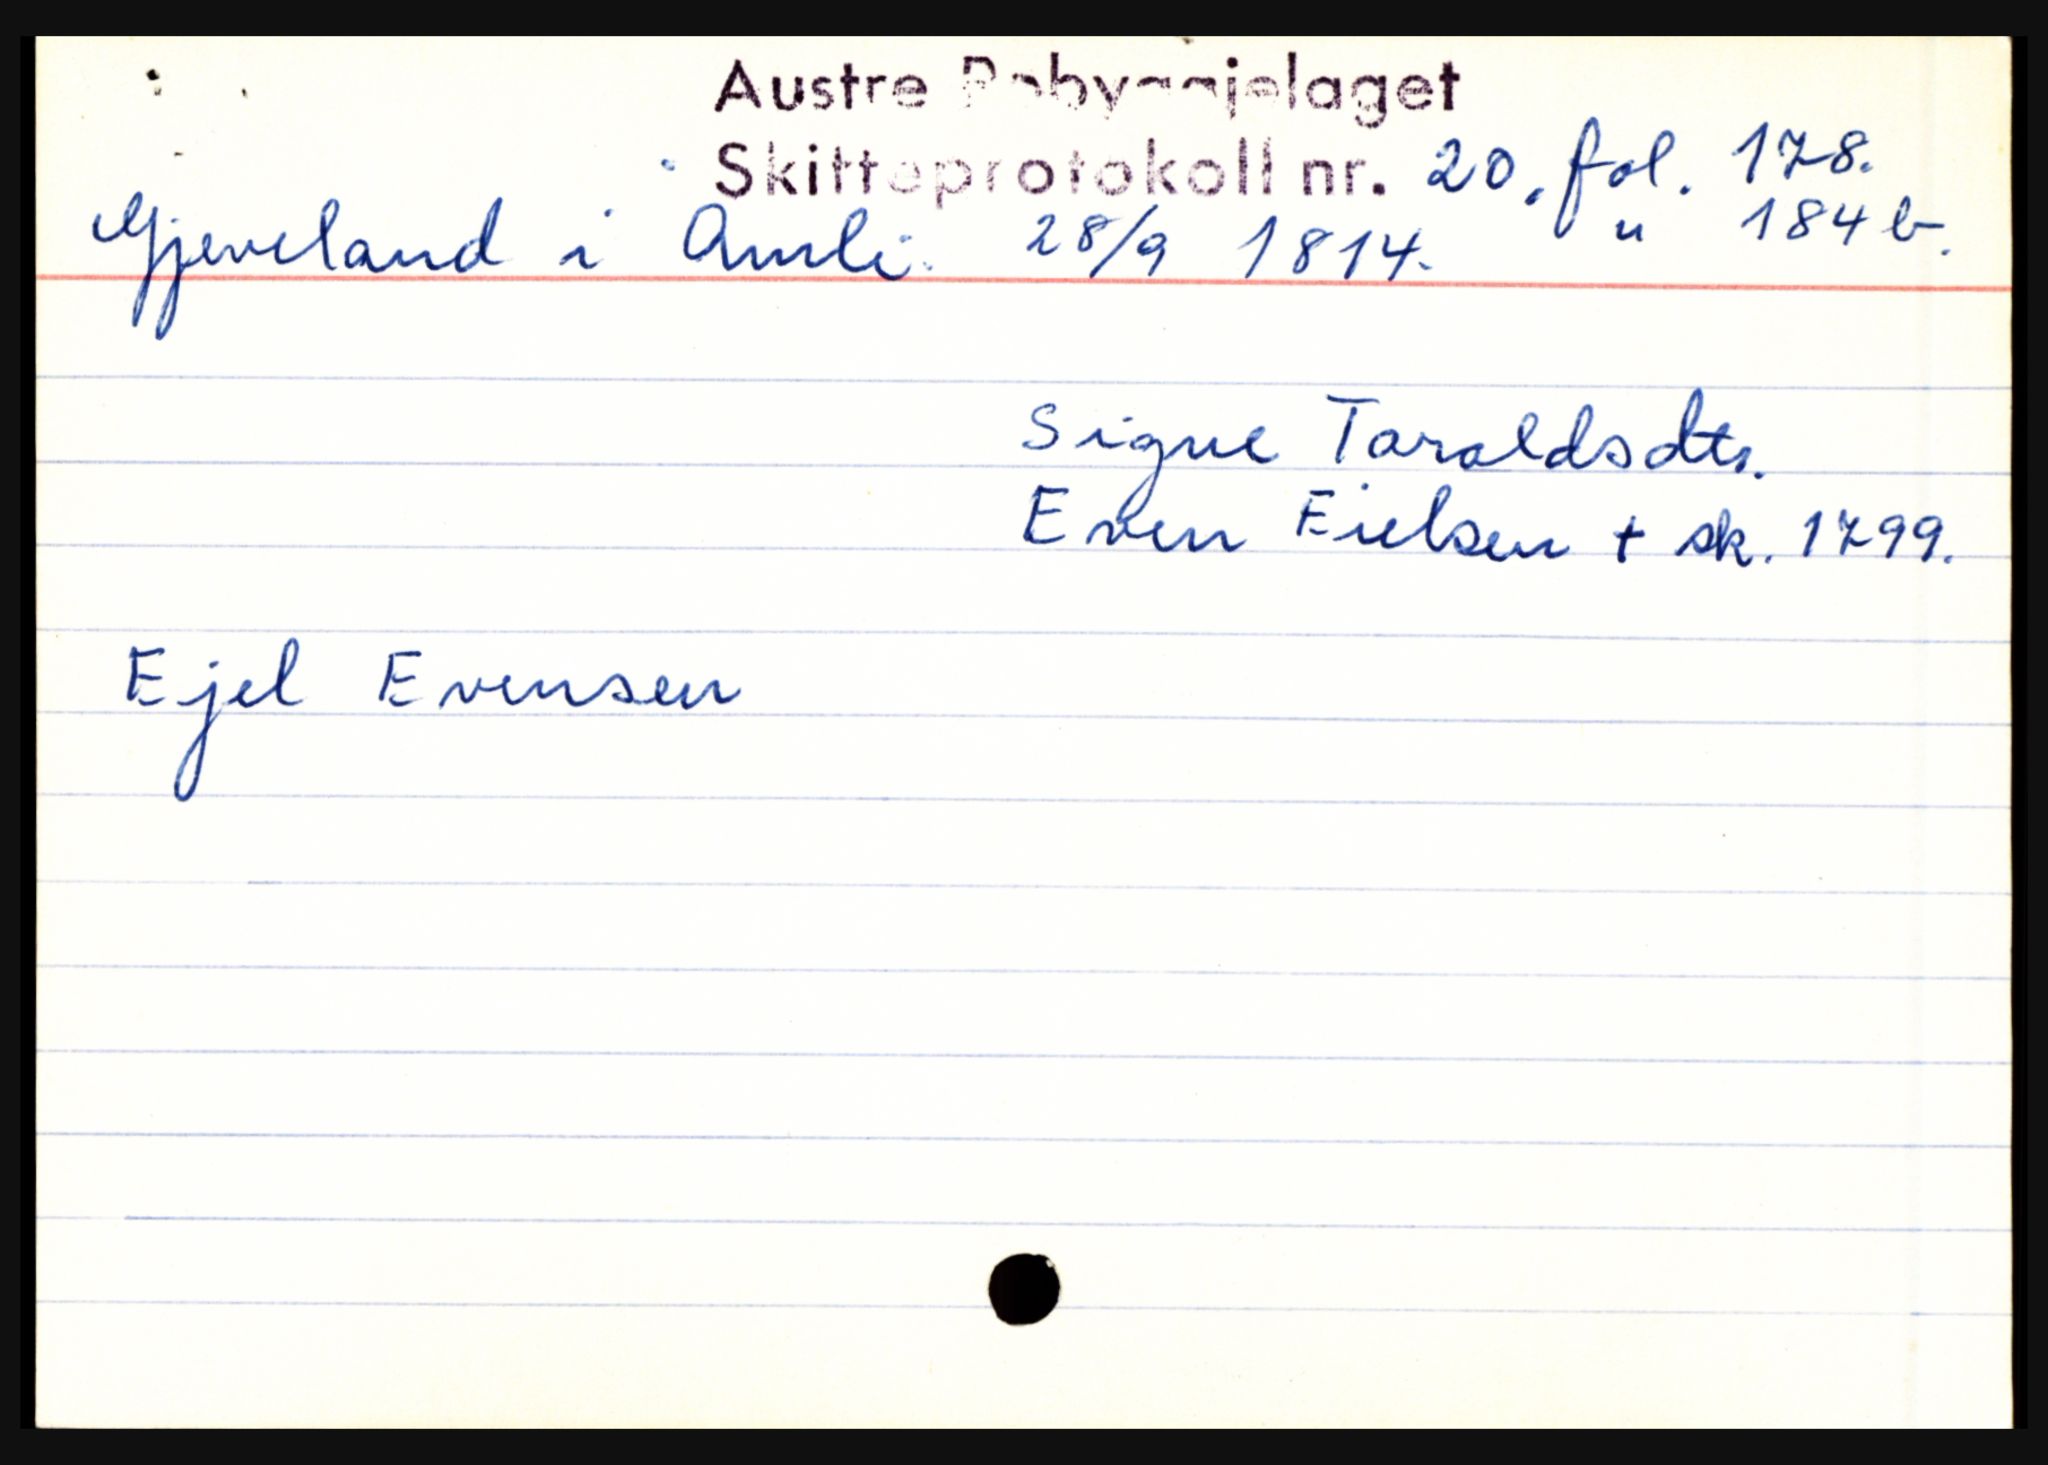 Austre Robyggjelaget
Skifteprotokoll nr. 20. fol. 178.
" 184 b.
Gjeveland i Amli. 28/9 1814.
Signe Taraldsdtr.
Even Eielsen + sk. 1799.
Ejel Evensen